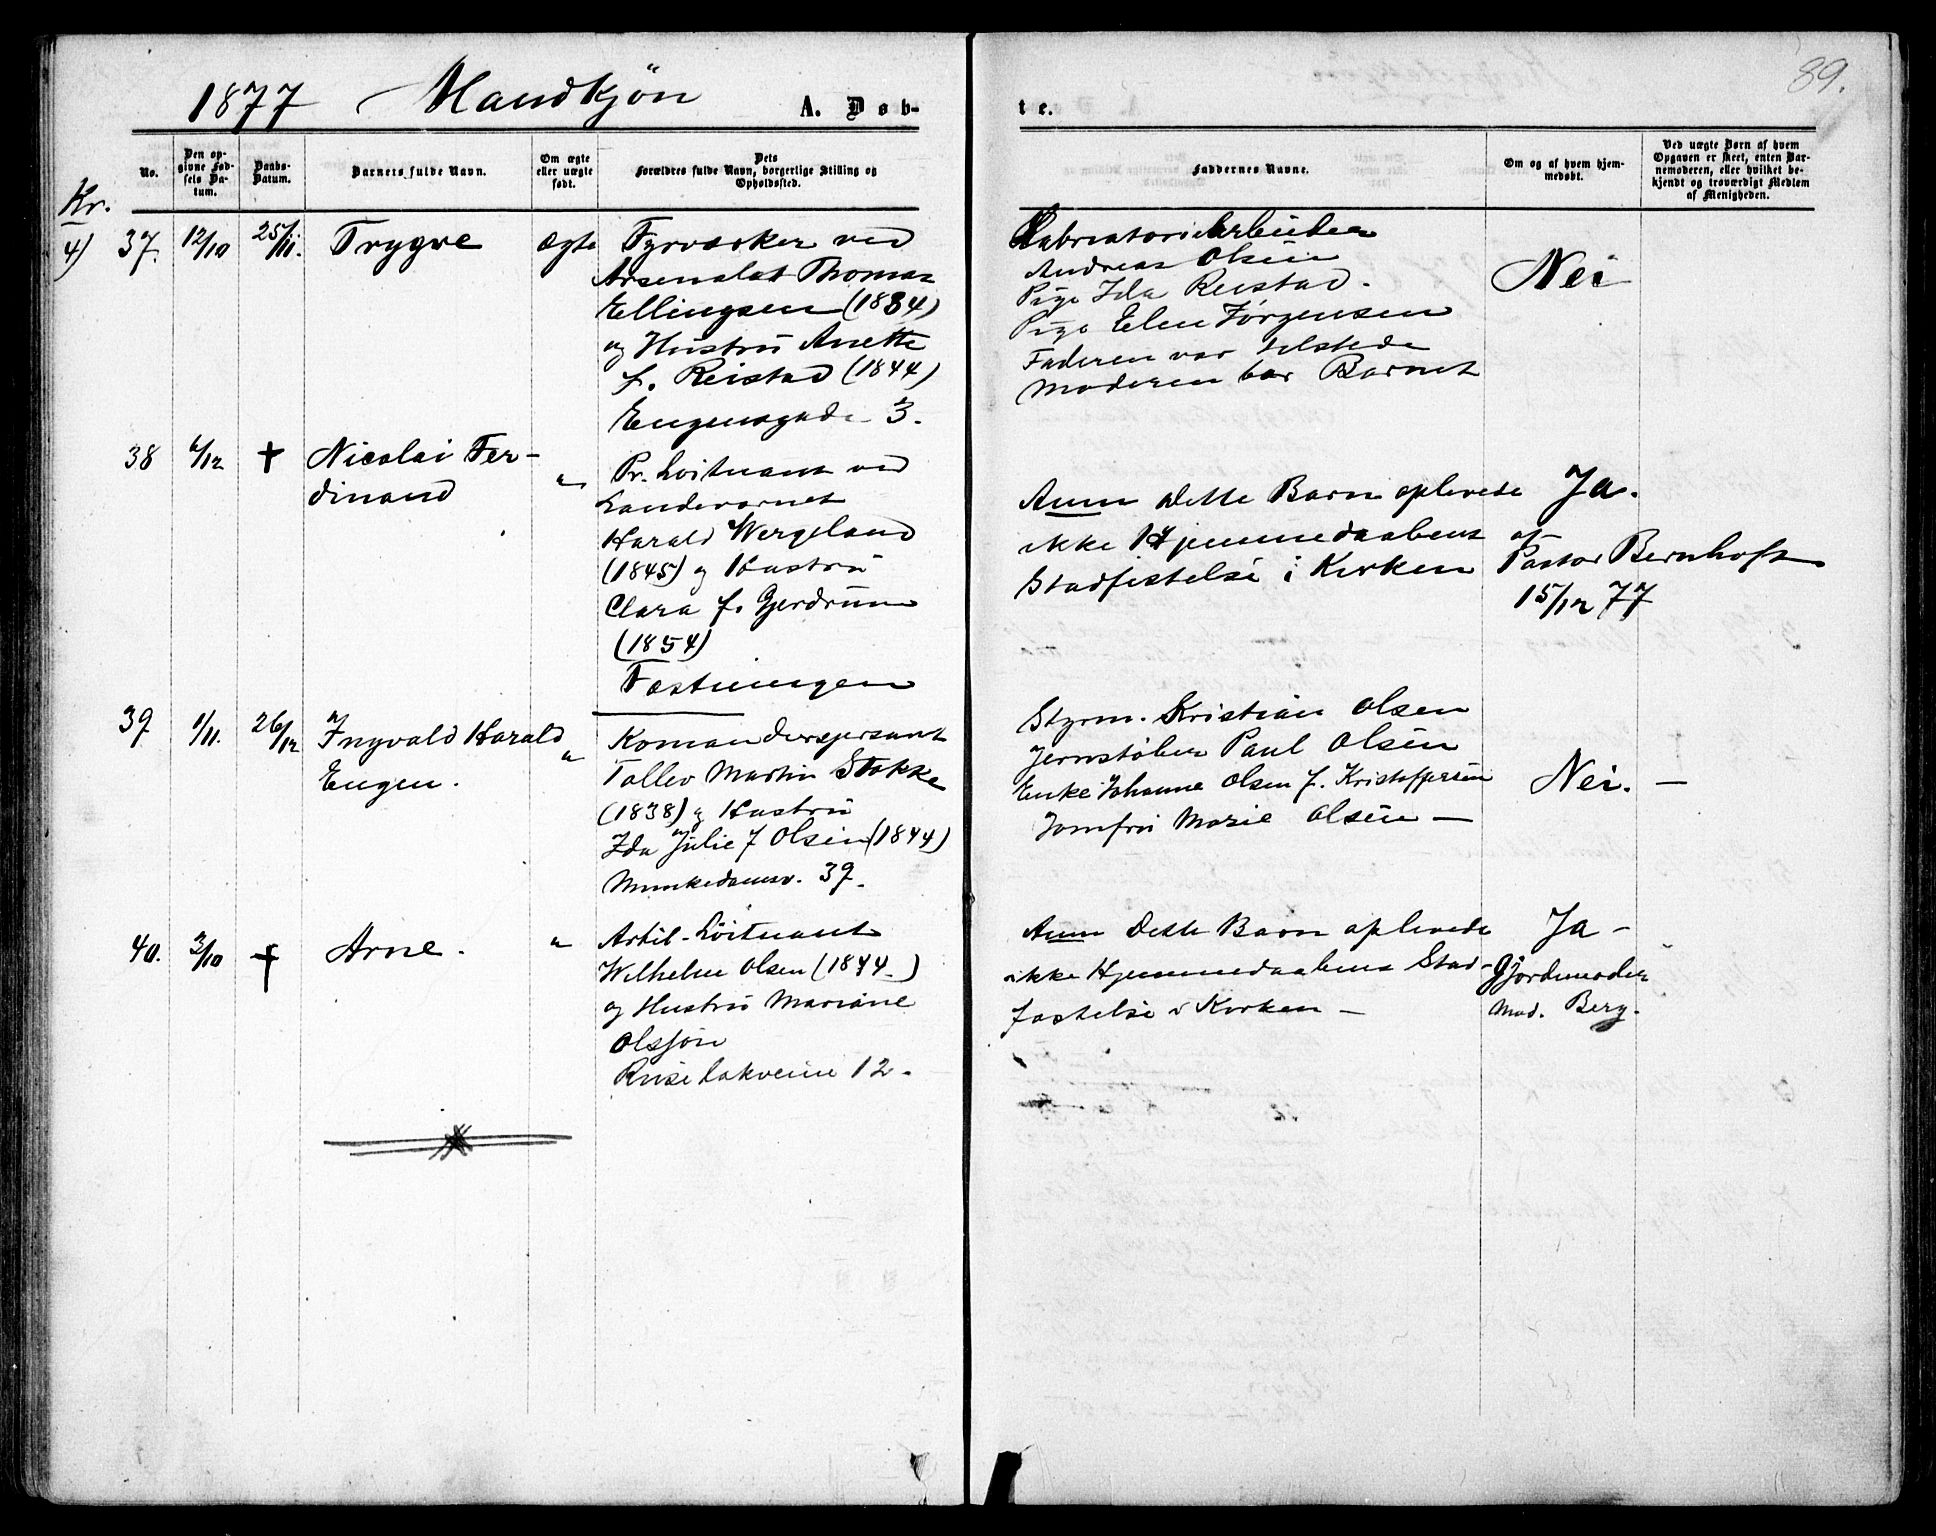 89.
1877 Mandkjön
A. Døb-
te.
No.
Den opgivne Fødsels Datum.
Daabs-Datum.
Barnets fulde Navn.
Om ægte eller uægte født.
Dets Forældres fulde Navn, borgerlige Stilling og Opholdssted.
Faddernes Navne.
Om og af hvem hjemmedøbt.
Ved uægte Børn af hvem Opgaven er skeet, enten Barnemoderen, eller hvilket bekjendt og troværdigt Medlem af Menigheden.
Kr.
4) 37. 12/10 25/11. Trygve ægte
Fyrvarker ved
Arsenalet Thomas
Ellingsen (1834)
og Hustru Anette
f. Reistad (1844)
Eugensgade 3.
Andreas Olsen
Pige Ida Reistad.
Pige Elen Jörgensen
Faderen var tilstede
Moderen bar Barnet
Nei
38 6/12 † Nicolai Fer-
dinand
"
Pr. Loitnant ved
Landevarnet
Harald Wergeland
(1845) og Hustru
Clara f. Gjerdrum
(1854)
Fæstningen
Anm Dette Barn oplevede
ikke Hjemmedaabens
Stadfæstelse i Kirken
Ja.
af
Pastor Bernhoft
15/12 77
39 1/11. 26/12 Ingvald Harald
Eugen.
"
Komandersersjant
Tollev Martin Stokke
(1838) og Hustru
Ida Julie f Olsen (1844)
Munkedamsv. 39.
Styrm. Kristian Olsen
Jernstøber Paul Olsen
Enke Johanne Olsen f. Kristoffersen
Jomfru Marie Olsen —
Nei. —
40. 3/10 † Arne. "
Artil-Löitnant
Wilhelm Olsen (1844.)
og Hustru Mariane
Olsjön
Ruselokveien 12.
Anm Dette Barn oplevede
ikke Hjemmedaabens Stad-
fæstelse i Kirken —
Ja —
Gjordemoder
Mad. Berg.